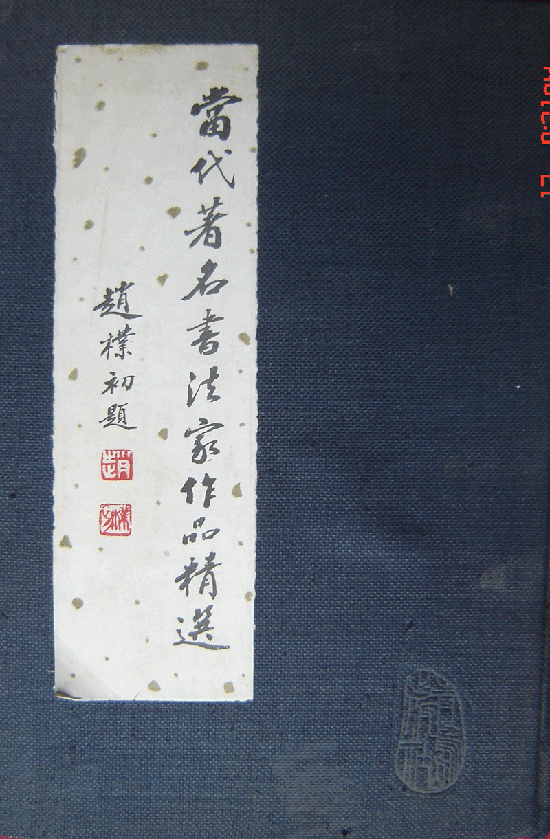 當代著名書法家作品精選
趙樸初題
趙